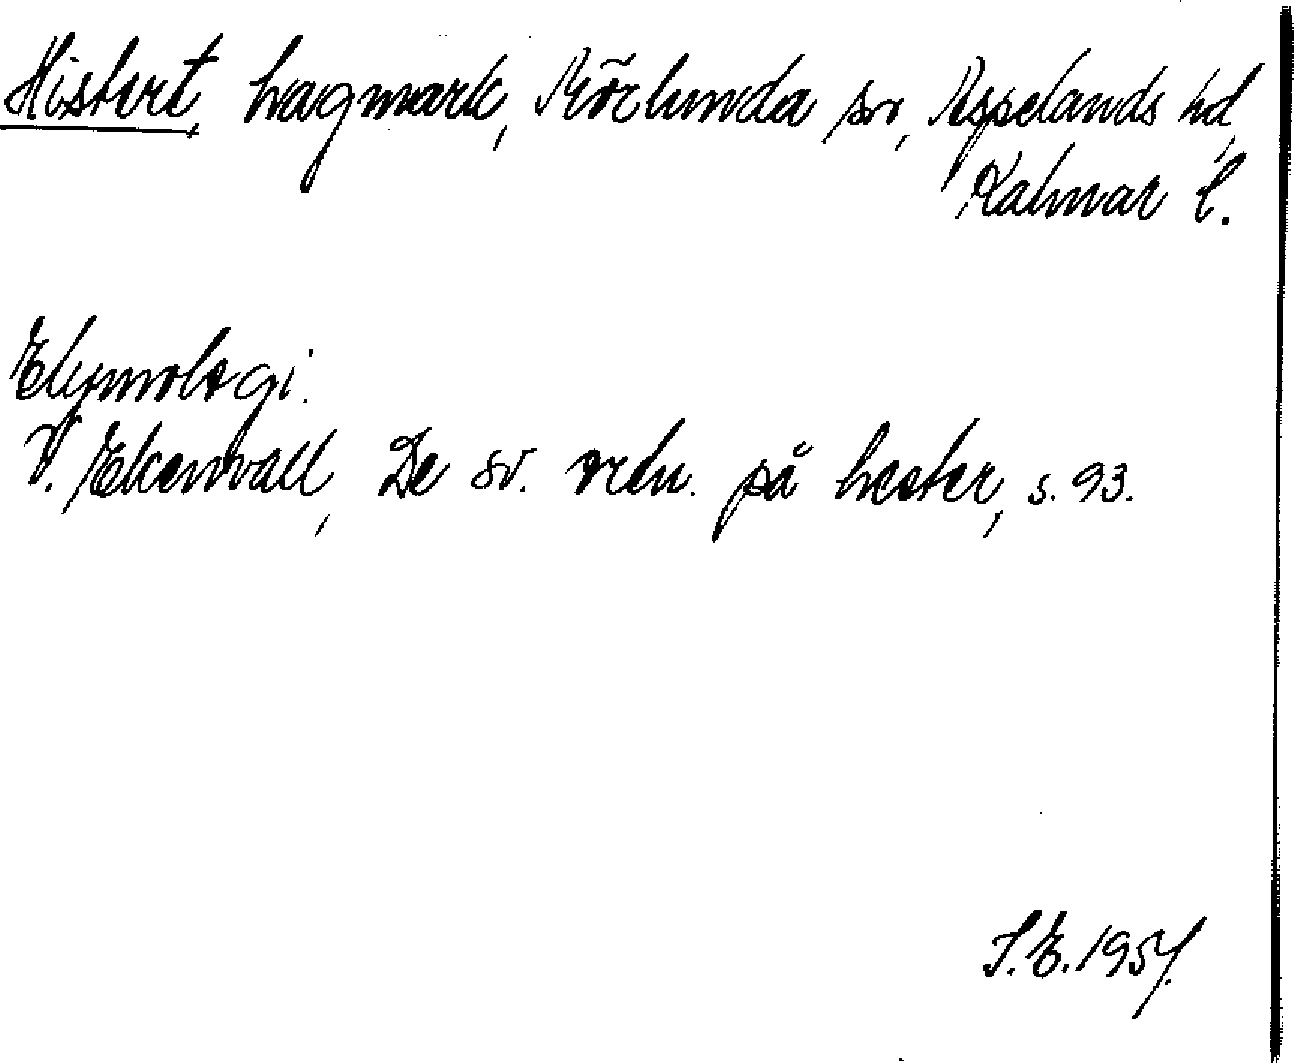 Histert, hagmark, Mörlunda sn, Aspelands hd,
Kalmar l.
Etymologi.
V. Ekenvall, De sv. ordn. på hester, s. 93.
S.E. 1957.